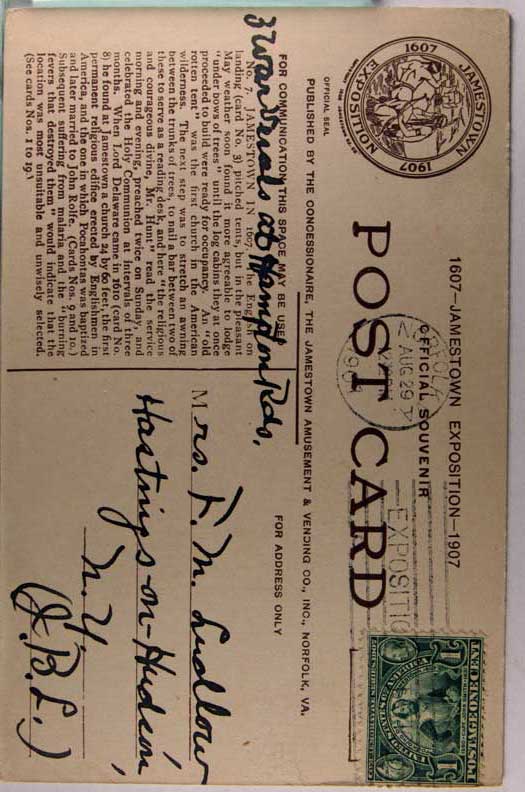 1607—JAMESTOWN EXPOSITION—1907
OFFICIAL SOUVENIR
POST CARD
JAMESTOWN
EXPOSITION
1607
1907
OFFICIAL SEAL
AUG 29
1907
EXPOSITIO
1
PUBLISHED BY THE CONCESSIONAIRE, THE JAMESTOWN AMUSEMENT & VENDING CO., INC., NORFOLK, VA.
FOR COMMUNICATION THIS SPACE MAY BE USED
FOR ADDRESS ONLY
3 War Vessels at Hampton Rds.
No. 7. JAMESTOWN IN 1607. The English on
landing (card No. 3) pitched tents, but in the pleasant
May weather soon found it more agreeable to lodge
"under bows of trees" until the log cabins they at once
proceeded to build were ready for occupancy. An "old
rotten tent" was the first church in the American
wilderness. The next step was to stretch an awning
between the trunks of trees, to nail a bar between two of
these to serve as a reading desk, and here "the religious
and courageous divine, Mr. Hunt" read the service
morning and evening, preached twice on Sunday, and
celebrated the Holy Communion at intervals of three
months. When Lord Delaware came in 1610 (card No.
8) he found at Jamestown a church 24 by 60 feet, the first
permanent religious edifice erected by Englishmen in
America, and the one in which Pocahontas was baptized
and later married to John Rolfe. (Cards Nos. 9 and 10.)
Subsequent suffering from malaria and the "burning
fevers that destroyed them" would indicate that the
location was most unsuitable and unwisely selected.
(See cards Nos. 1 to 19.)
Mrs. F. M. Ludlow
Hastings-on-Hudson,
N.Y.
(J.B.L.)